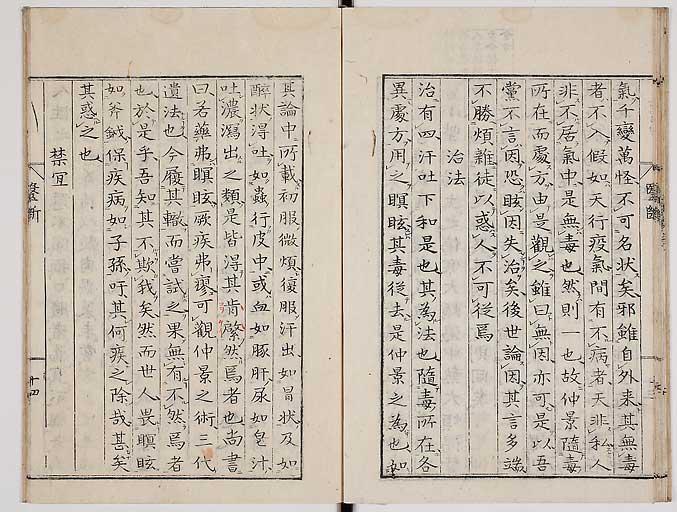 氣千變萬怪不可名状矣邪雖自外来其無毒
者不入假如天行疫氣間有不病者天非私人
非不居氣中是無毒也然則一也故仲景隨毒
所在而處方由是觀之雖曰無因亦可是以吾
黨不言因恐眩因失治矣後世論因其言多端
不勝煩雜徒以惑人不可從焉
治法
治有四汗吐下和是也其為法也隨毒所在各
異處方用之瞑眩其毒從去是仲景之為也如
其論中所載初服微煩復服汗出如冒状及如
醉状得吐如蟲行皮中或血如豚肝尿如皂汁
吐濃瀉出之類是皆得其肯綮然焉者也尚書
曰若藥弗瞑眩厥疾弗瘳可觀仲景之術三代
遺法也今履其轍而嘗試之果無有不然焉者
也於是乎吾知其不欺我矣然而世人畏瞑眩
如斧鉞保疾病如子孫吁其何疾之除哉甚矣
其惑之也
禁宜
醫斷
十四